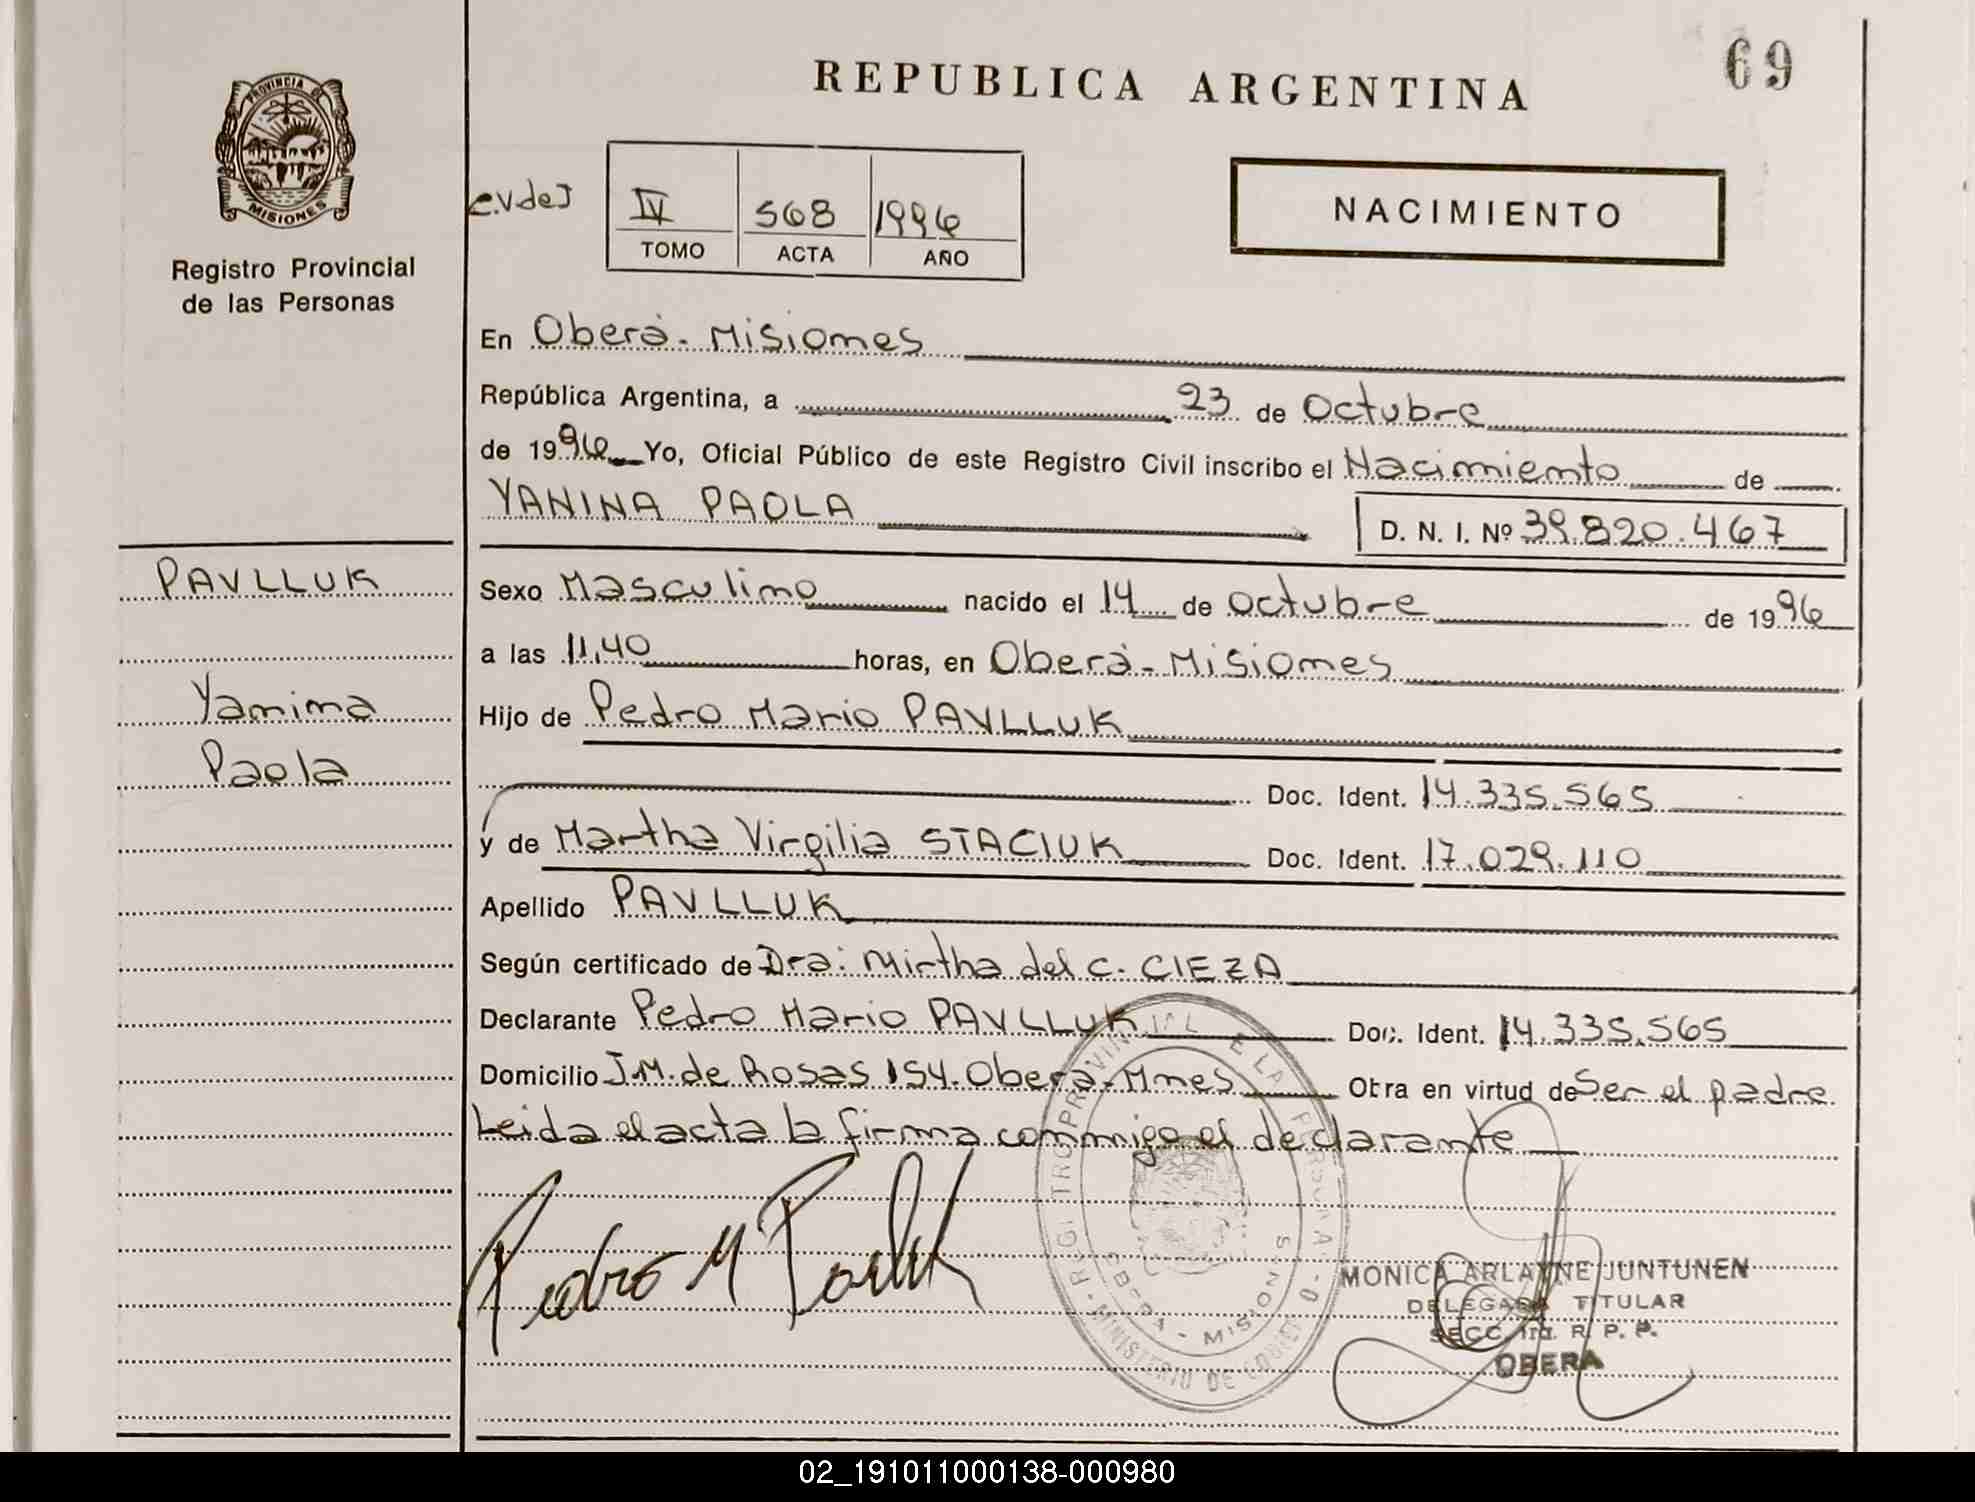 69
REPUBLICA ARGENTINA
PROVINCIA DE
MISIONES
Registro Provincial
de las Personas
e.v de J
IV 568 1996
TOMO ACTA AÑO
NACIMIENTO
En Oberá - Misiones
República Argentina, a 23 de Octubre
de 1996 Yo, Oficial Público de este Registro Civil inscribo el Nacimiento de
YANINA PAOLA
D. N. I. Nº 39.820.467
PAVLLUK
Yanina
Paola
Sexo Masculino nacido el 14 de octubre de 1996
a las 11,40 horas, en Oberá - Misiones
Hijo de Pedro Mario PAVLLUK
Doc. Ident. 14.335.565
y de Martha Virgilia STACIUK Doc. Ident. 17.029.110
Apellido PAVLLUK
Según certificado de Dra: Mirtha del C. CIEZA
Declarante Pedro Mario PAVLLUK Doc. Ident. 14.335.565
Domicilio J.M. de Rosas 154. Oberá - Mnes Obra en virtud de Ser el padre
Leida el acta la firma conmigo el declarante
Pedro M
MONICA ARLAYNE JUNTUNEN
DELEGADA TITULAR
SECC. 1ra. R. P. P.
OBERA
02_191011000138-000980